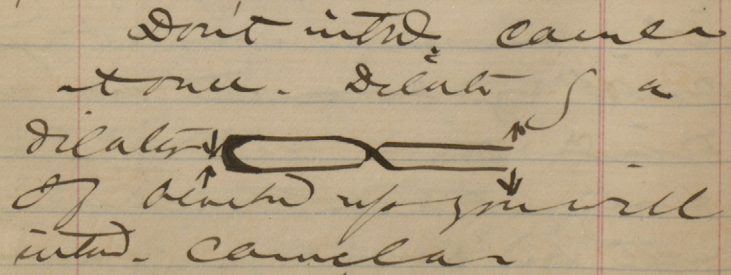 Don't introd. canula
at once. Dilate ʃ a
dilator
If blocked up you will
introd. canula